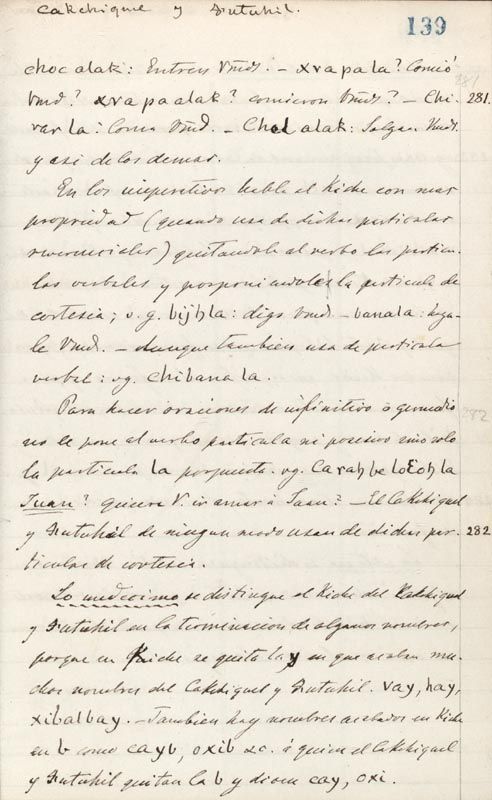 Cakchiquel y Zutuhil.
139
choc alak: Entren Vmds. – xva pa la? Comió
281
Vmd? xva pa alak? comieron Vmds? – Chi- 281.
var la: Coma Vmd. – Chel alak: Salgan Vmds.
y asi de los demas.
En los imperativos habla el Kiche con mas
propriedad (quando usa de dichas particulas
reverenciales) quitandole al verbo las particu-
las verbales y posponiendoles la particula de
cortesia; v. g. bijhla: diga Vmd. – banala: haga-
le Vmd. – Aunque tambien usa de particula
verbal: vg. chibanala.
Para hacer oraciones de infinitivo ó gerundio 282
no se pone al verbo particula ni posesivo sino solo
la particula la pospuesta. vg. Carah be loɛoh la
Juan? quiere V. ir amar á Juan? – El Cakchiquel
y Zutuhil de ningun modo usan de dichas par- 282.
ticulas de cortesia.
Lo undecimo se distingue el Kiche del Cakchiquel
y Zutuhil en la terminacion de algunos nombres,
porque en Kiche se quita la y en que acaban mu-
chos nombres del Cakchiquel y Zutuhil. vay, hay,
xibalbay. – Tambien hay nombres acabados en Kiche
en b como cayb, oxib &c. á quien el Cakchiquel
y Zutuhil quitan la b y dicen cay, oxi.